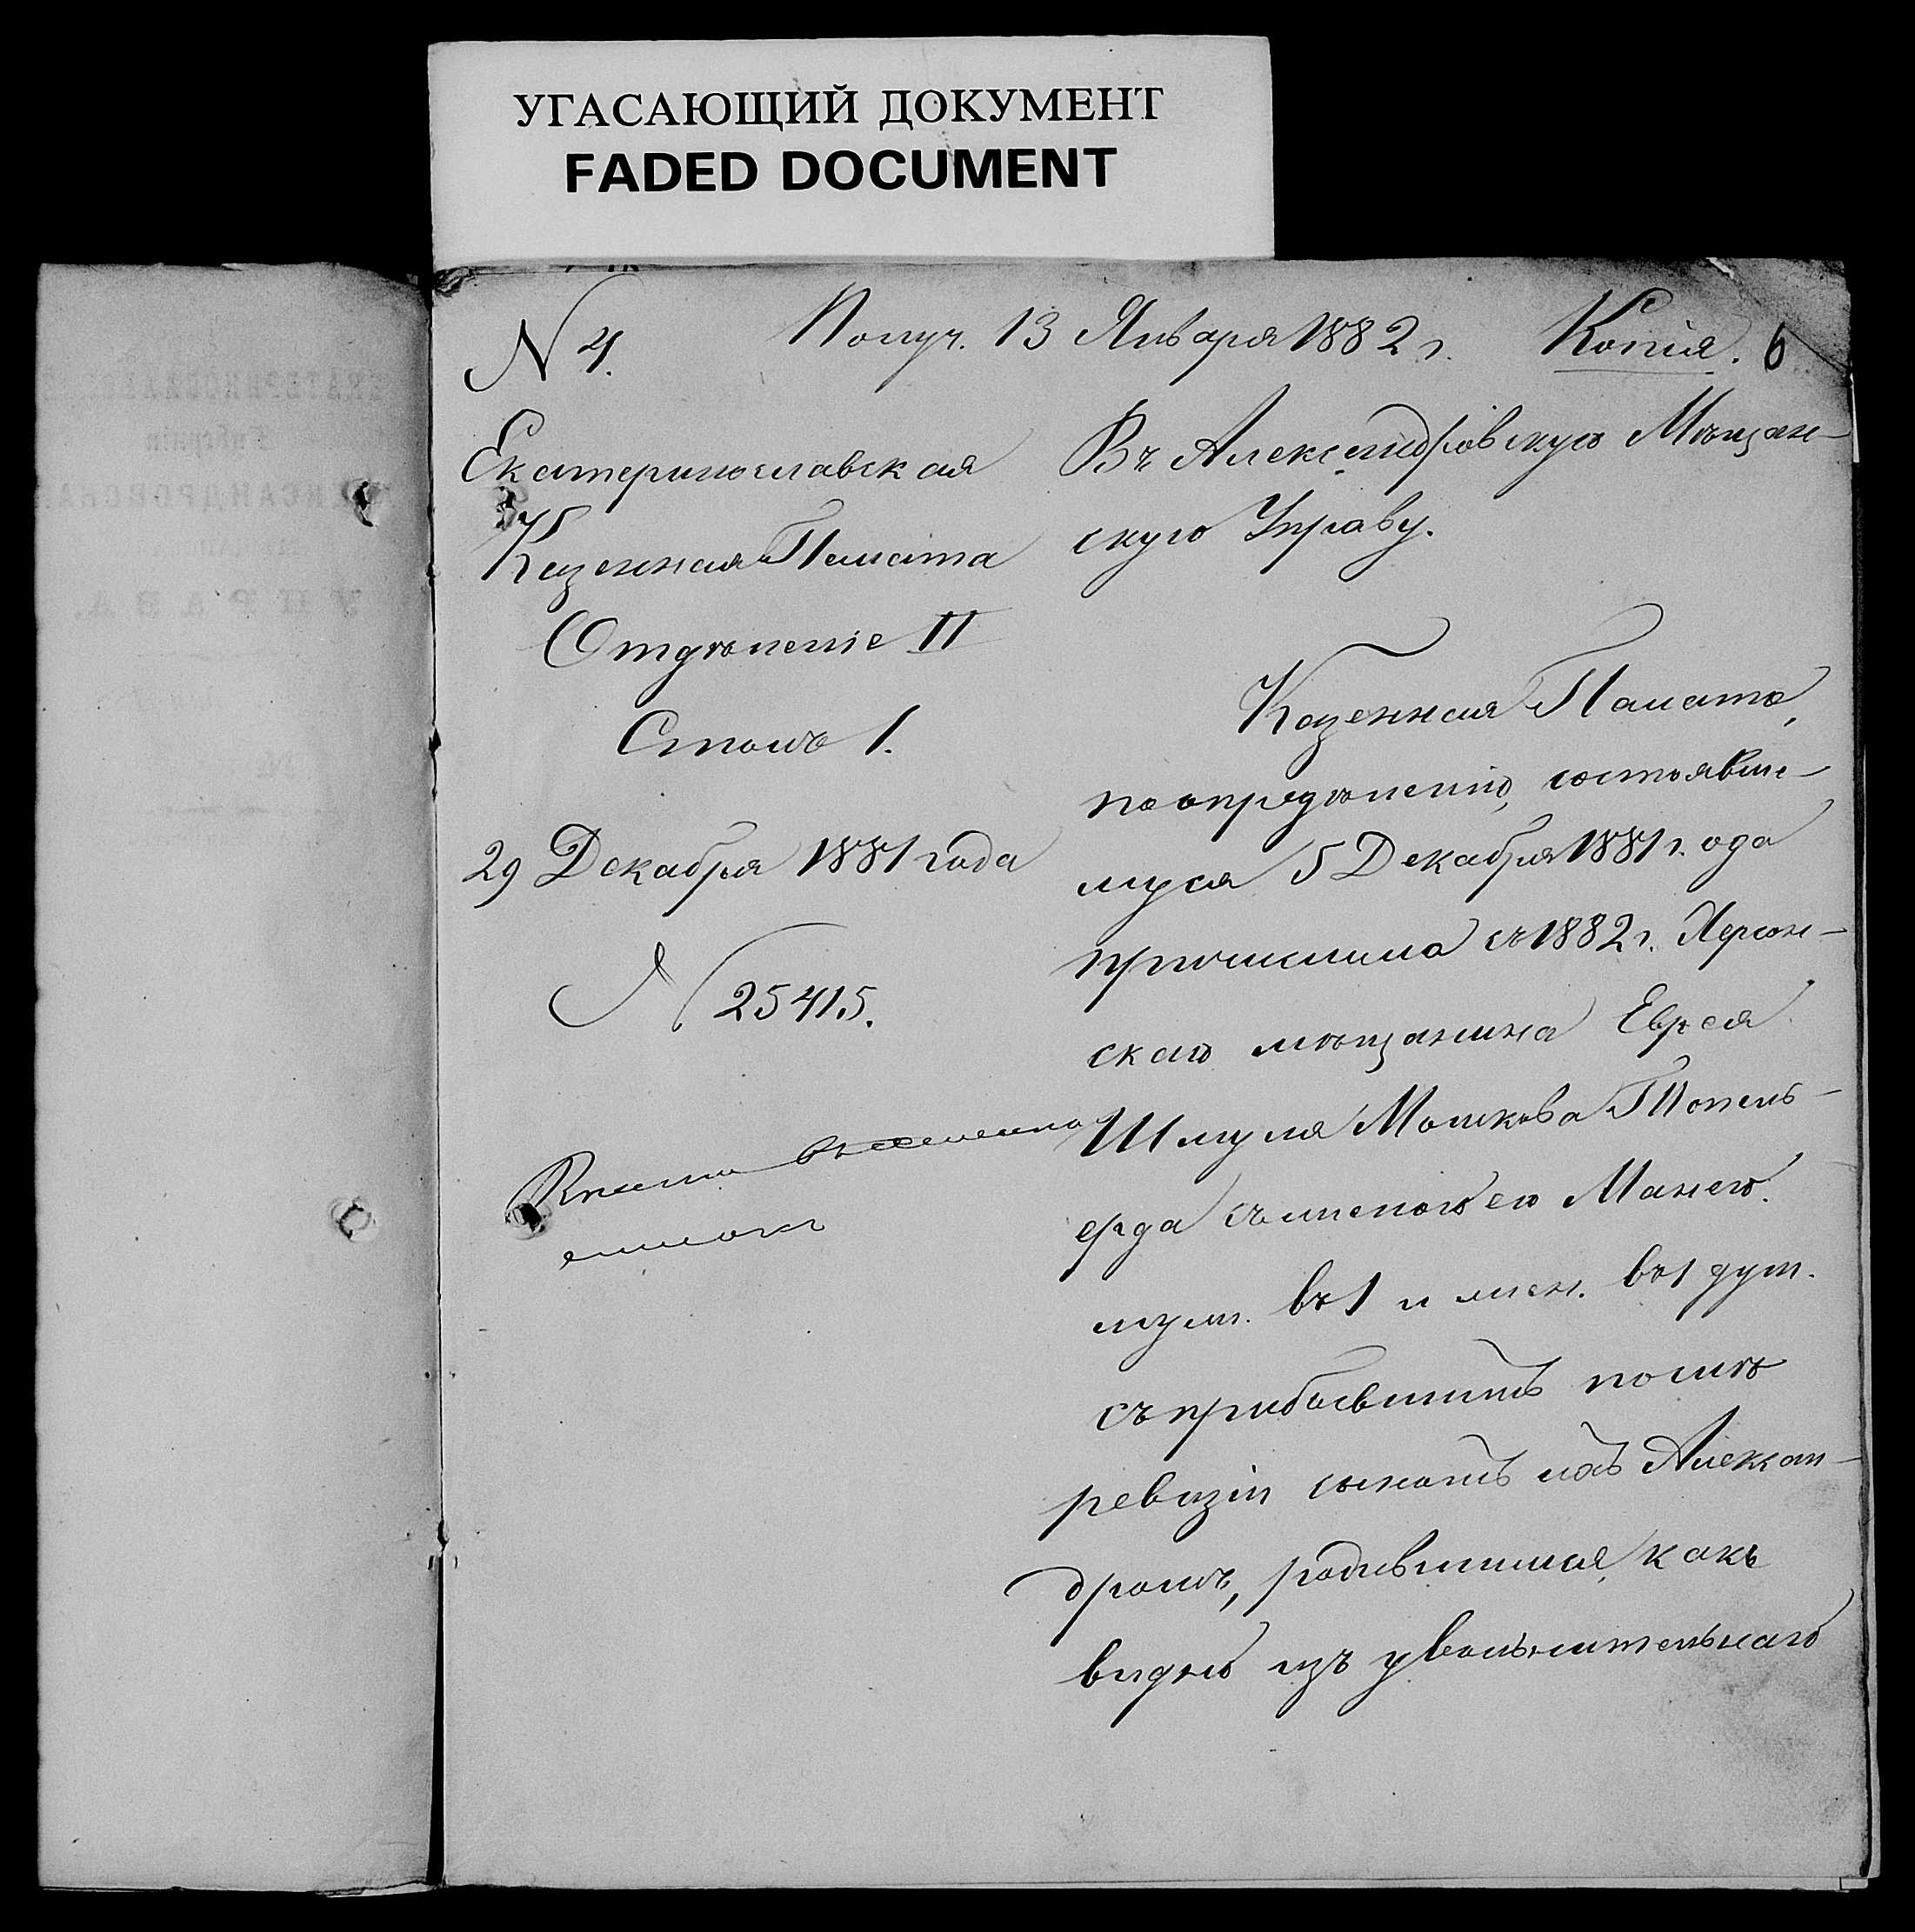 УГАСАЮЩИЙ ДОКУМЕНТ
FADED DOCUMENT
N 4.
Получ. 13 Января 1882 г.
Копія.
6
Екатеринославская
Казенная Палата
Отдѣленіе II
Столъ 1.
29 Декабря 1881 года
N 25415.
Въ Александровскую Мѣщан-
скую Управу.
Казенная Палата,
по опредѣленію, состоявше-
муся 5 Декабря 1881 года
причислила съ 1882 г. Херсон-
скаго мѣщанина Еврея
Шмуля Мошкова Топель-
ерда съ женою его Манею.
муж. въ 1 и жен. въ 1 душ.
съ прибывшимъ послѣ
ревизіи сыномъ ихъ Алексан-
дромъ, родившимся, какъ
видно изъ увольнительнаго